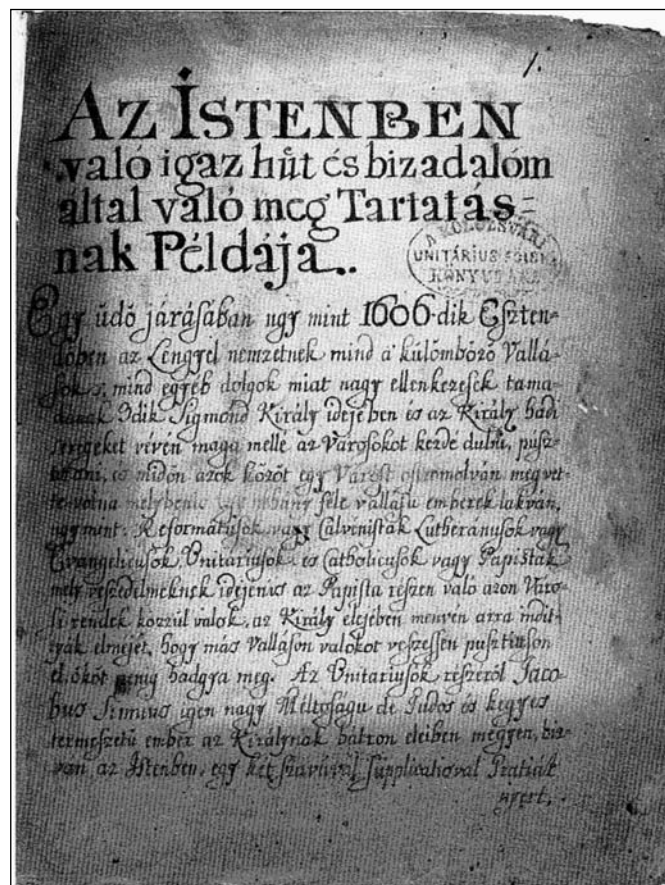 1.
AZ ISTENBEN
való igaz hűt és bizadalóm
által való meg Tartatás=
nak Példája..
A KOLOZSVÁRI
UNITÁRIUS
KÖNYVTÁRA
Egy üdő járásában ugy mint 1606-dik Eszten=
dőben az Lengyel nemzetnek mind a külömböző Vallá=
sok, mind egyéb dolgok miat nagy ellenkezések tama=
dának 3dik Sigmond Király idejében és az Király hadi
seregeket vévén maga mellé az Városokot kezdé dulni, pusz=
titani, és midőn azok közöt egy Várost ostromolván megvet=
te volna melyben is féle vallásu emberek lakván,
ugymint. Reformátusok vagy Calvenisták Lutheránusok vagy
Evangelicusok Unitariusok és Catholicusok vagy Papisták
mely veszedelmeknek idejénis az Papista részen való azon Váro=
si rendek közzül valok, az Király elejében menvén arra indit=
tyák elmejét, hogy más Valláson valokot veszessen pusztitson
el, őköt penig hadgya meg. Az Unitariusok részeről Jaco=
bus igen nagy Méltoságu de Tudos és kegyes
termeszetü ember az Királynak bátron eleiben megyen, biz=
ván az Istenben, egy két szavával supplicatioval Gratiát
nyert,